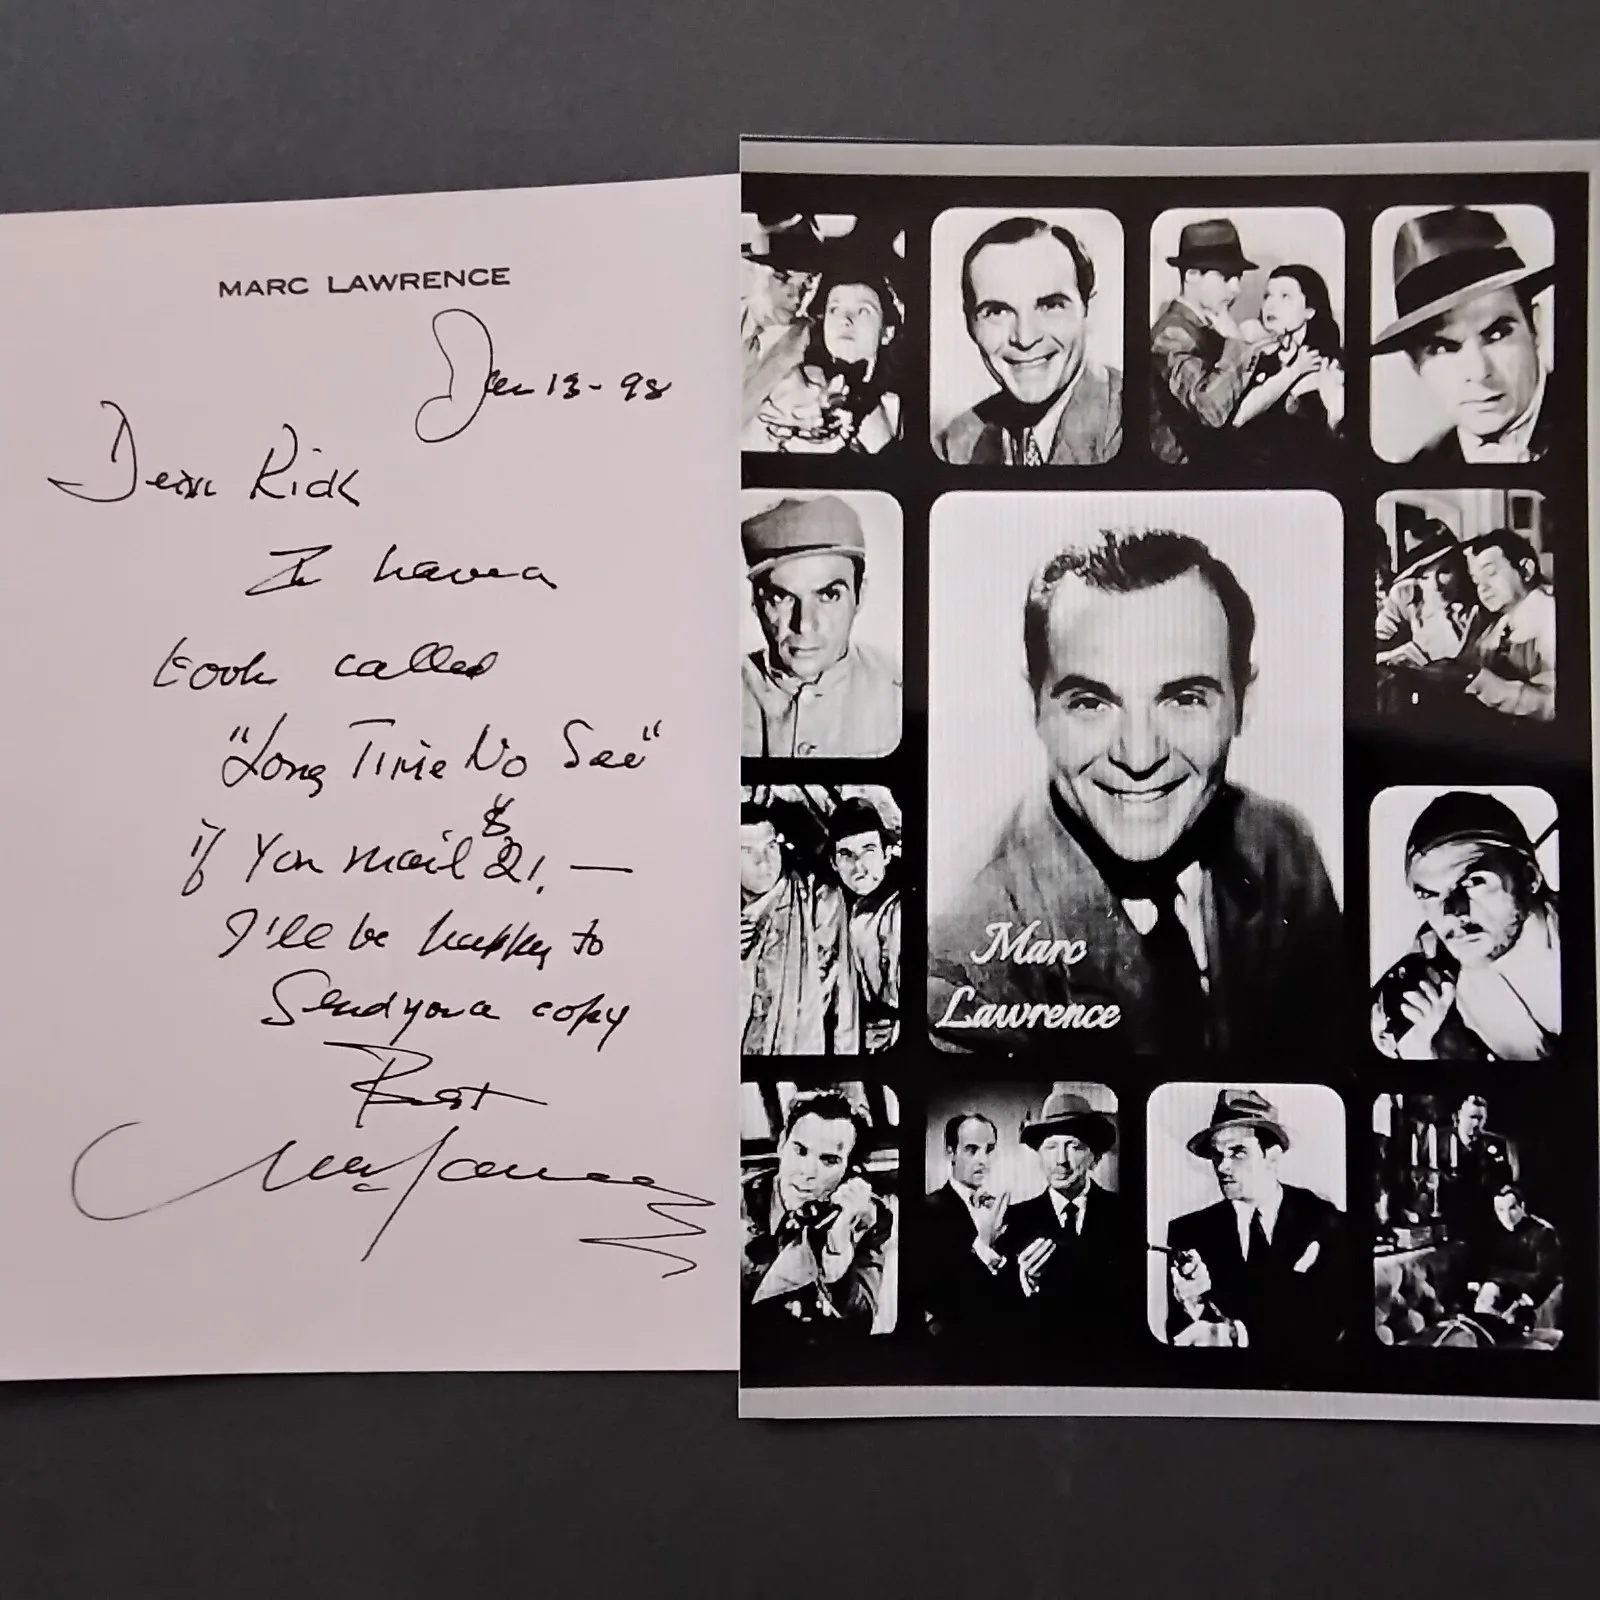 MARC LAWRENCE
Dec 13-98
Dear Rick
I have a
book called
"Long Time No See"
if you mail $21.—
I'll be happy to
send you a copy
Best
Marc Lawrence
Marc
Lawrence